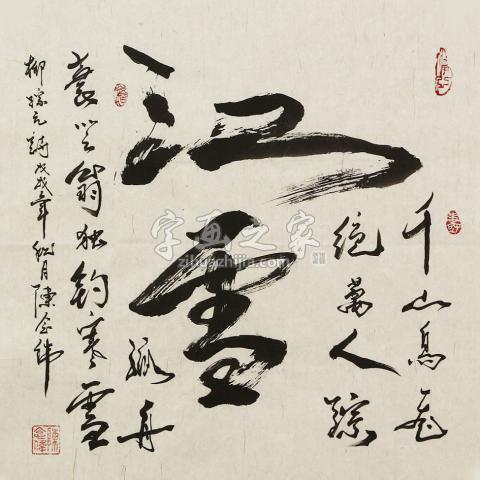 千山鳥飛
绝萬人踪
江雪
孤舟
蓑笠翁独钓寒雪
柳宗元詩戊戌年秋月陳金
字画之家
zihuazhijia.com